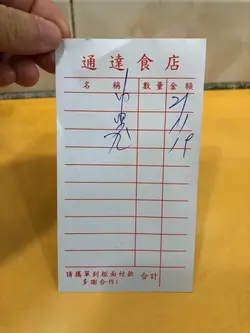 通達食店
名稱 數量 金額
21
11
19
請攜單到柜面付款 合計
多謝合作!